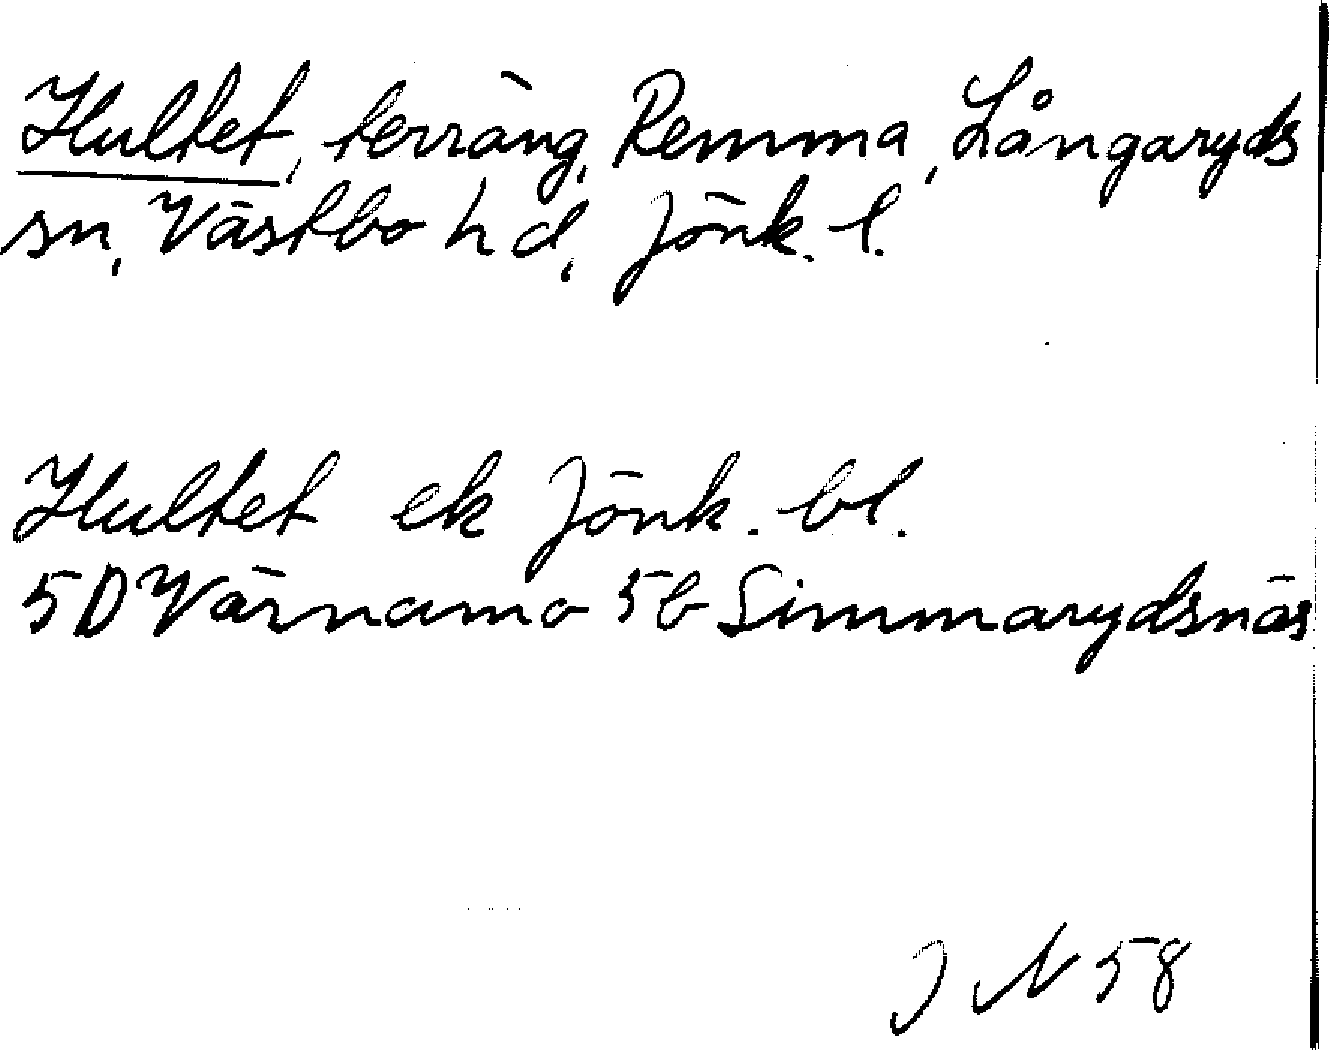 Hultet, terräng, Remma, Långaryds
sn, Västbo hd, Jönk. l.
Hultet ek Jönk. bl.
5D Värnamo 5b Simmarydsnäs
J N 58